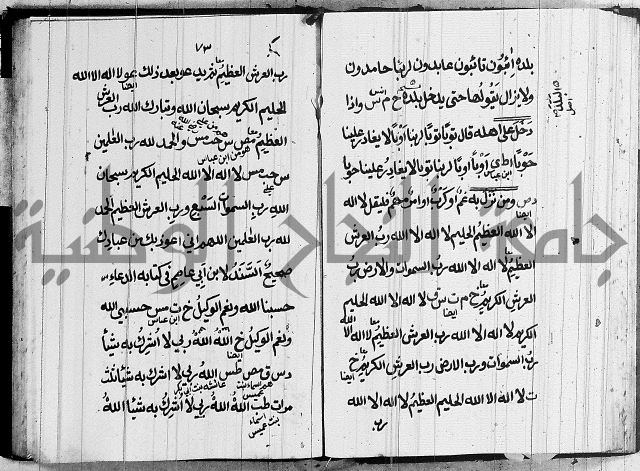 بلده آئبون تائبون عابدون لربنا حامدون
ولا يزال يقولها حتى يدخل بلده خ م س واذا
دخل على اهله قال توبا توبا لربنا اوبا لا يغادر علينا
حوبا اط ى اوبا اوبا لربنا توبا لا يغادر علينا حوبا
ابن عباس
ر ص ومن نزل به غم او كرب او امر مهم فليقل لا اله
الا الله العظيم الحليم لا اله الا الله رب العرش
العظيم لا اله الا الله رب السموات والارض رب
العرش الكريم خ م ت س ق لا اله الا الله الحليم
ايضا
الكريم لا اله الا الله رب العرش العظيم لا اله الا الله
رب السموات ورب الارض رب العرش الكريم خ
ايضا
ت لا اله الا الله الحليم العظيم لا اله الا الله
رب
٧٣
رب العرش العظيم ثم يدعو بعد ذلك عو لا اله الا الله
ايضا
الحليم الكريم سبحان الله وتبارك الله رب العرش
العظيم مص س حب مس والحمد لله رب العلمين
ابن عباس
س حب مس لا اله الا الله الحليم الكريم سبحان
علي
الله رب السموات السبع ورب العرش العظيم الحمد
لله رب العلمين اللهم اني اعوذ بك من عبادك
صحيح السند لابن ابي عاصم في كتابه الدعاء
حسبنا الله ونعم الوكيل خ ت س حسبي الله
ابن عباس
ونعم الوكيل خ الله الله ربي لا اشرك به شيأ
ايضا
د س ق مص طس الله ربي لا اشرك به شيأ ثلث
مرات طب الله الله ربي لا اشرك به شيأ الله
اسماء
بنت عميس
جامعة النجاح الوطنية